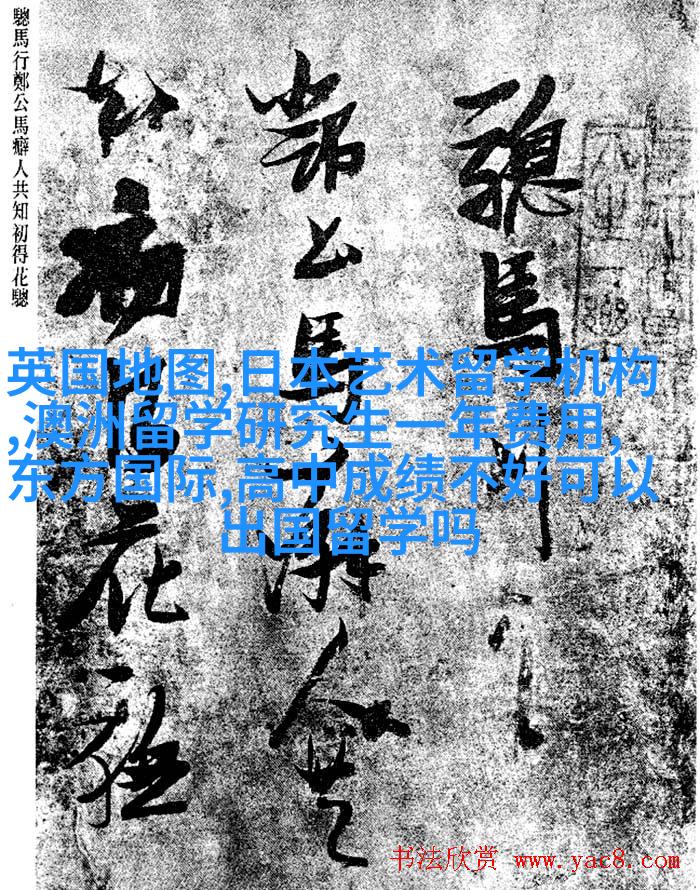 驄馬行鄭公馬癖人共知初得花驄
驄馬行
鄭公馬癖人共
知初得花驄
英国地图,日本艺术留学机构
,澳洲留学研究生一年费用,
东方国际,高中成绩不好可以
出国留学吗
书法欣赏 www.yac8.com